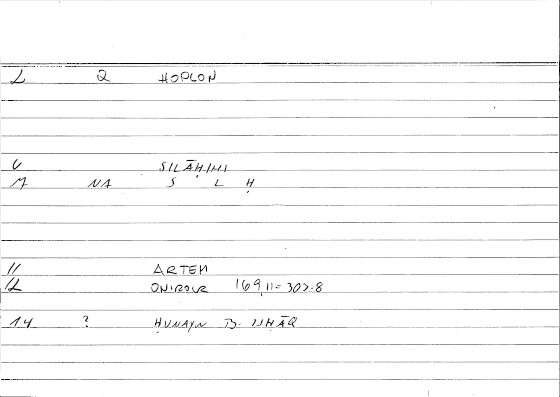 1 2 HOPLON
6 SILĀḤIHI
7 NA S L Ḥ
11 ARTEM
12 ONIROCR 169,11 = 307.8
14 ? ḤUNAYN B. ISḤĀQ